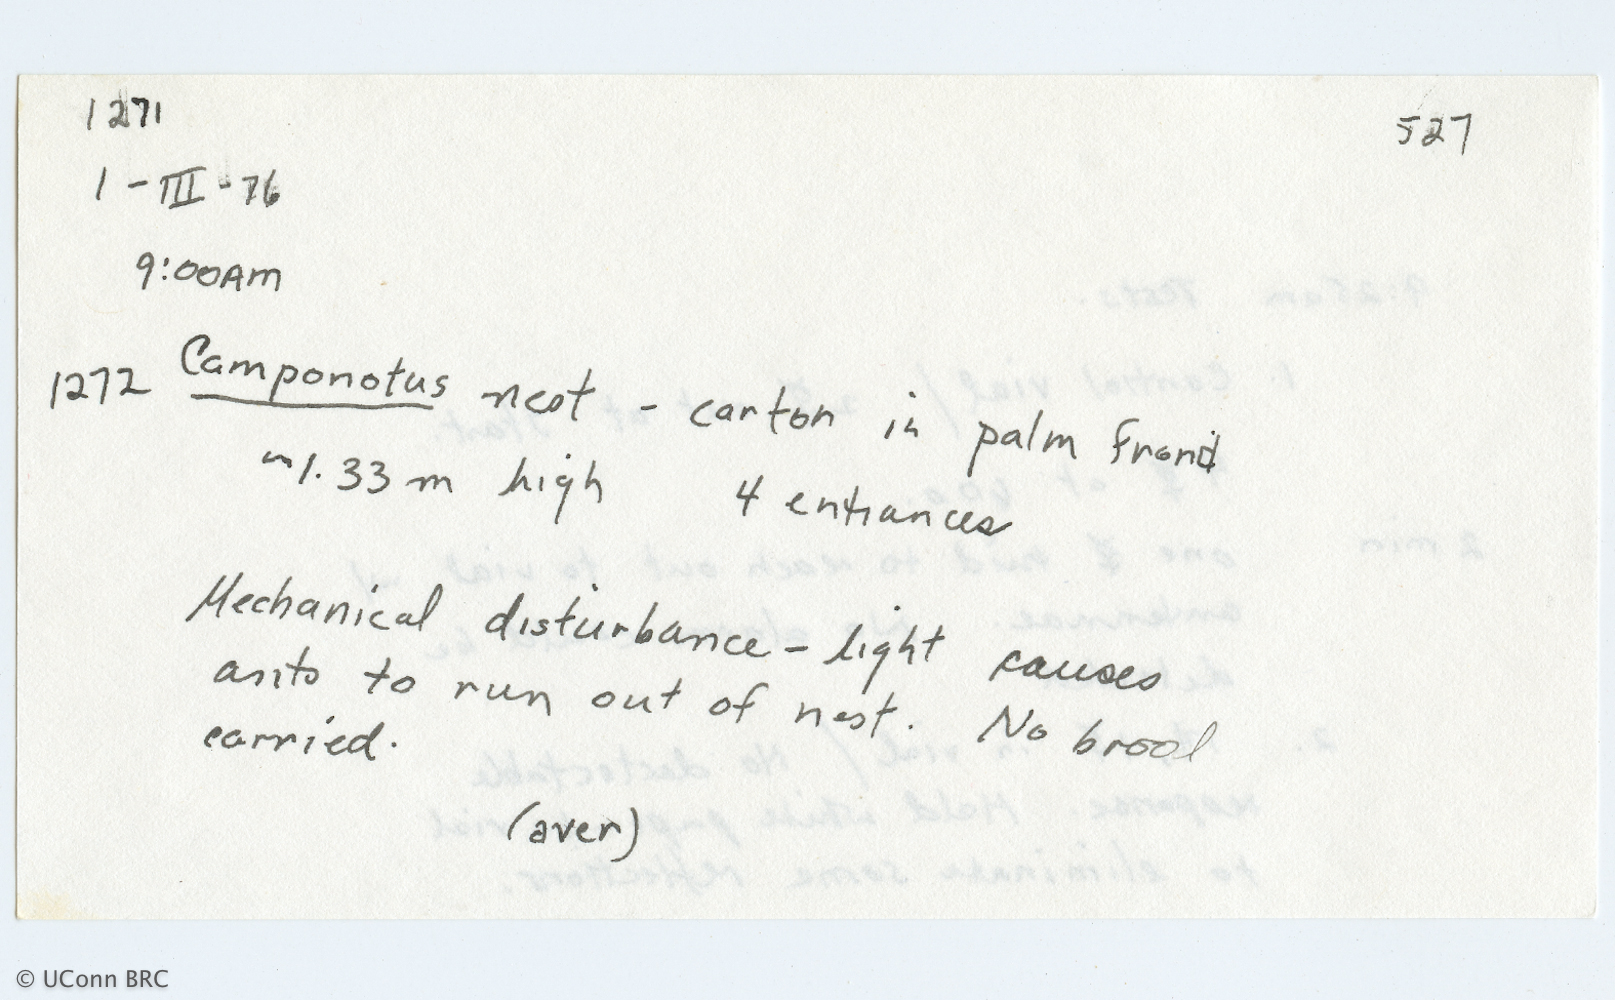 1271
527
1-III-76
9:00AM
1272 Camponotus nest - carton in palm frond
~1.33 m high 4 entrances
Mechanical disturbance - light causes
ants to run out of nest. No brood
carried.
(over)
© UConn BRC